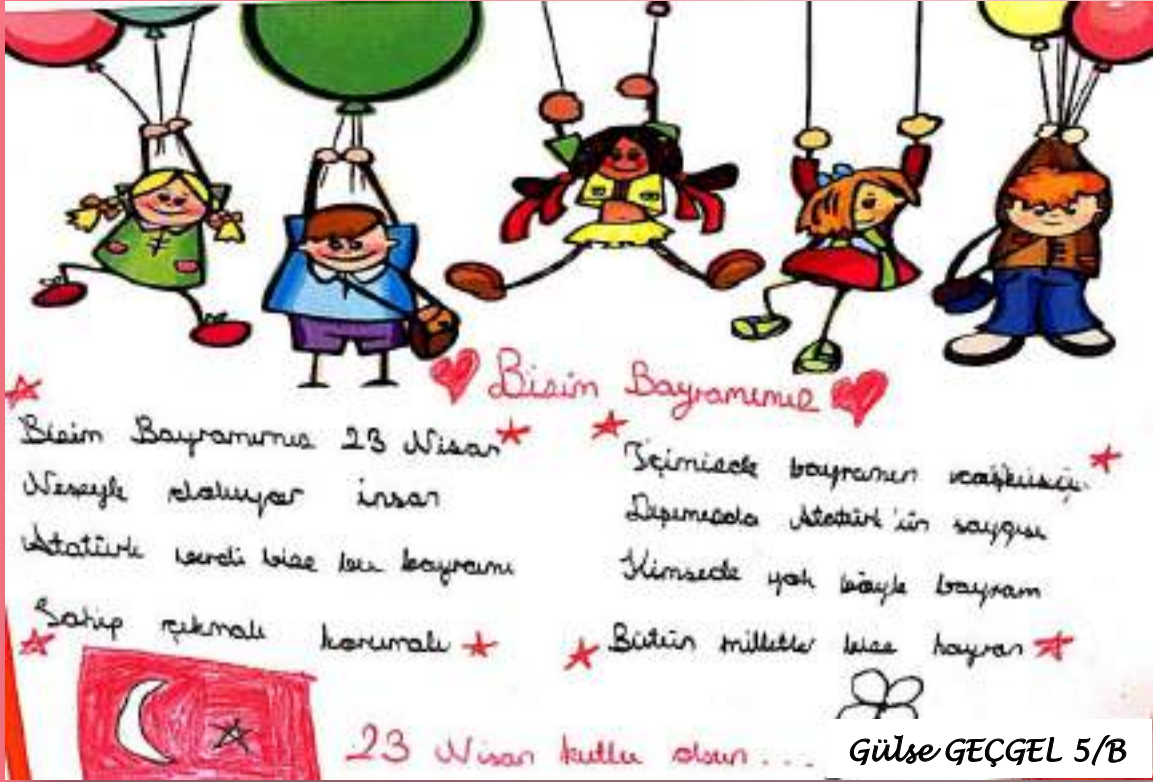 Bizim Bayramımız
Bizim Bayramımız 23 Nisan
Neşeyle doluyor insan
Atatürk verdi bize bu bayramı
Sahip çıkmalı korumalı
İçimizde bayramın
Dışımızda Atatürk'ün saygısı
Kimsede yok böyle bayram
Bütün milletler bize hayran
23 Nisan kutlu olsun...
Gülse GEÇGEL 5/B